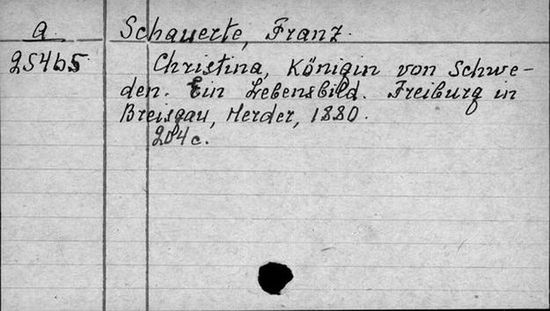 a
Schauerte, Franz.
25465
Christina, Königin von Schwe-
den. Ein Lebensbild. Freiburg in
Breisgau, Herder, 1880.
204 c.